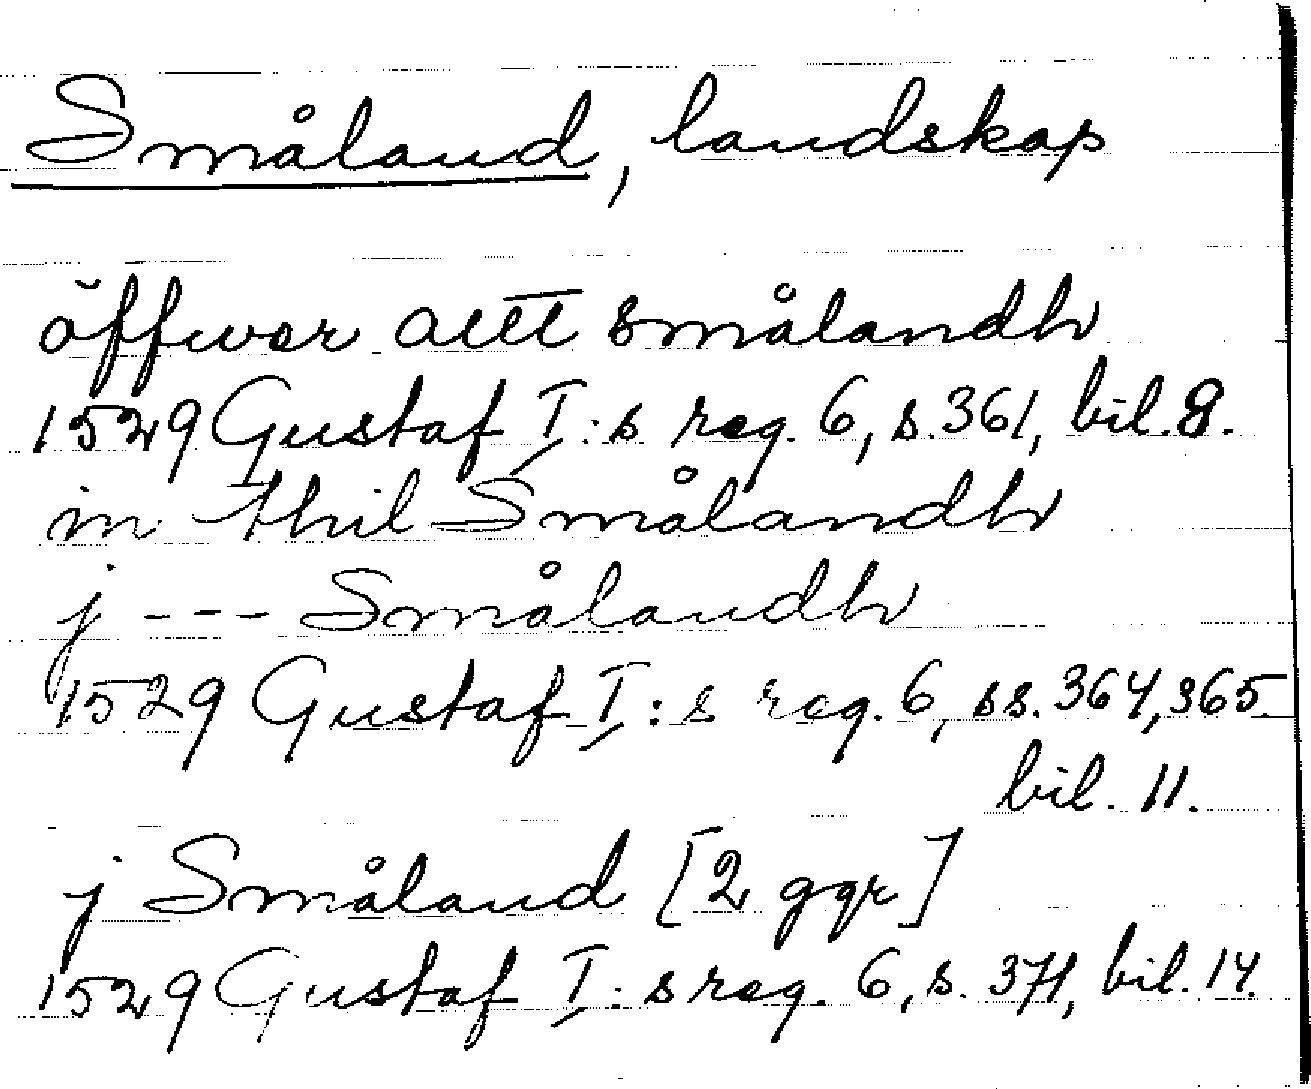 Småland, landskap
öffwer altt smålandh
1529 Gustaf I:s reg. 6, s. 361, bil. 8.
in thil Smålandh
j --- Smålandh
1529 Gustaf I:s reg. 6, ss. 364, 365.
bil. 11.
j Småland [2 ggr]
1529 Gustaf I:s reg. 6, s. 371, bil. 14.